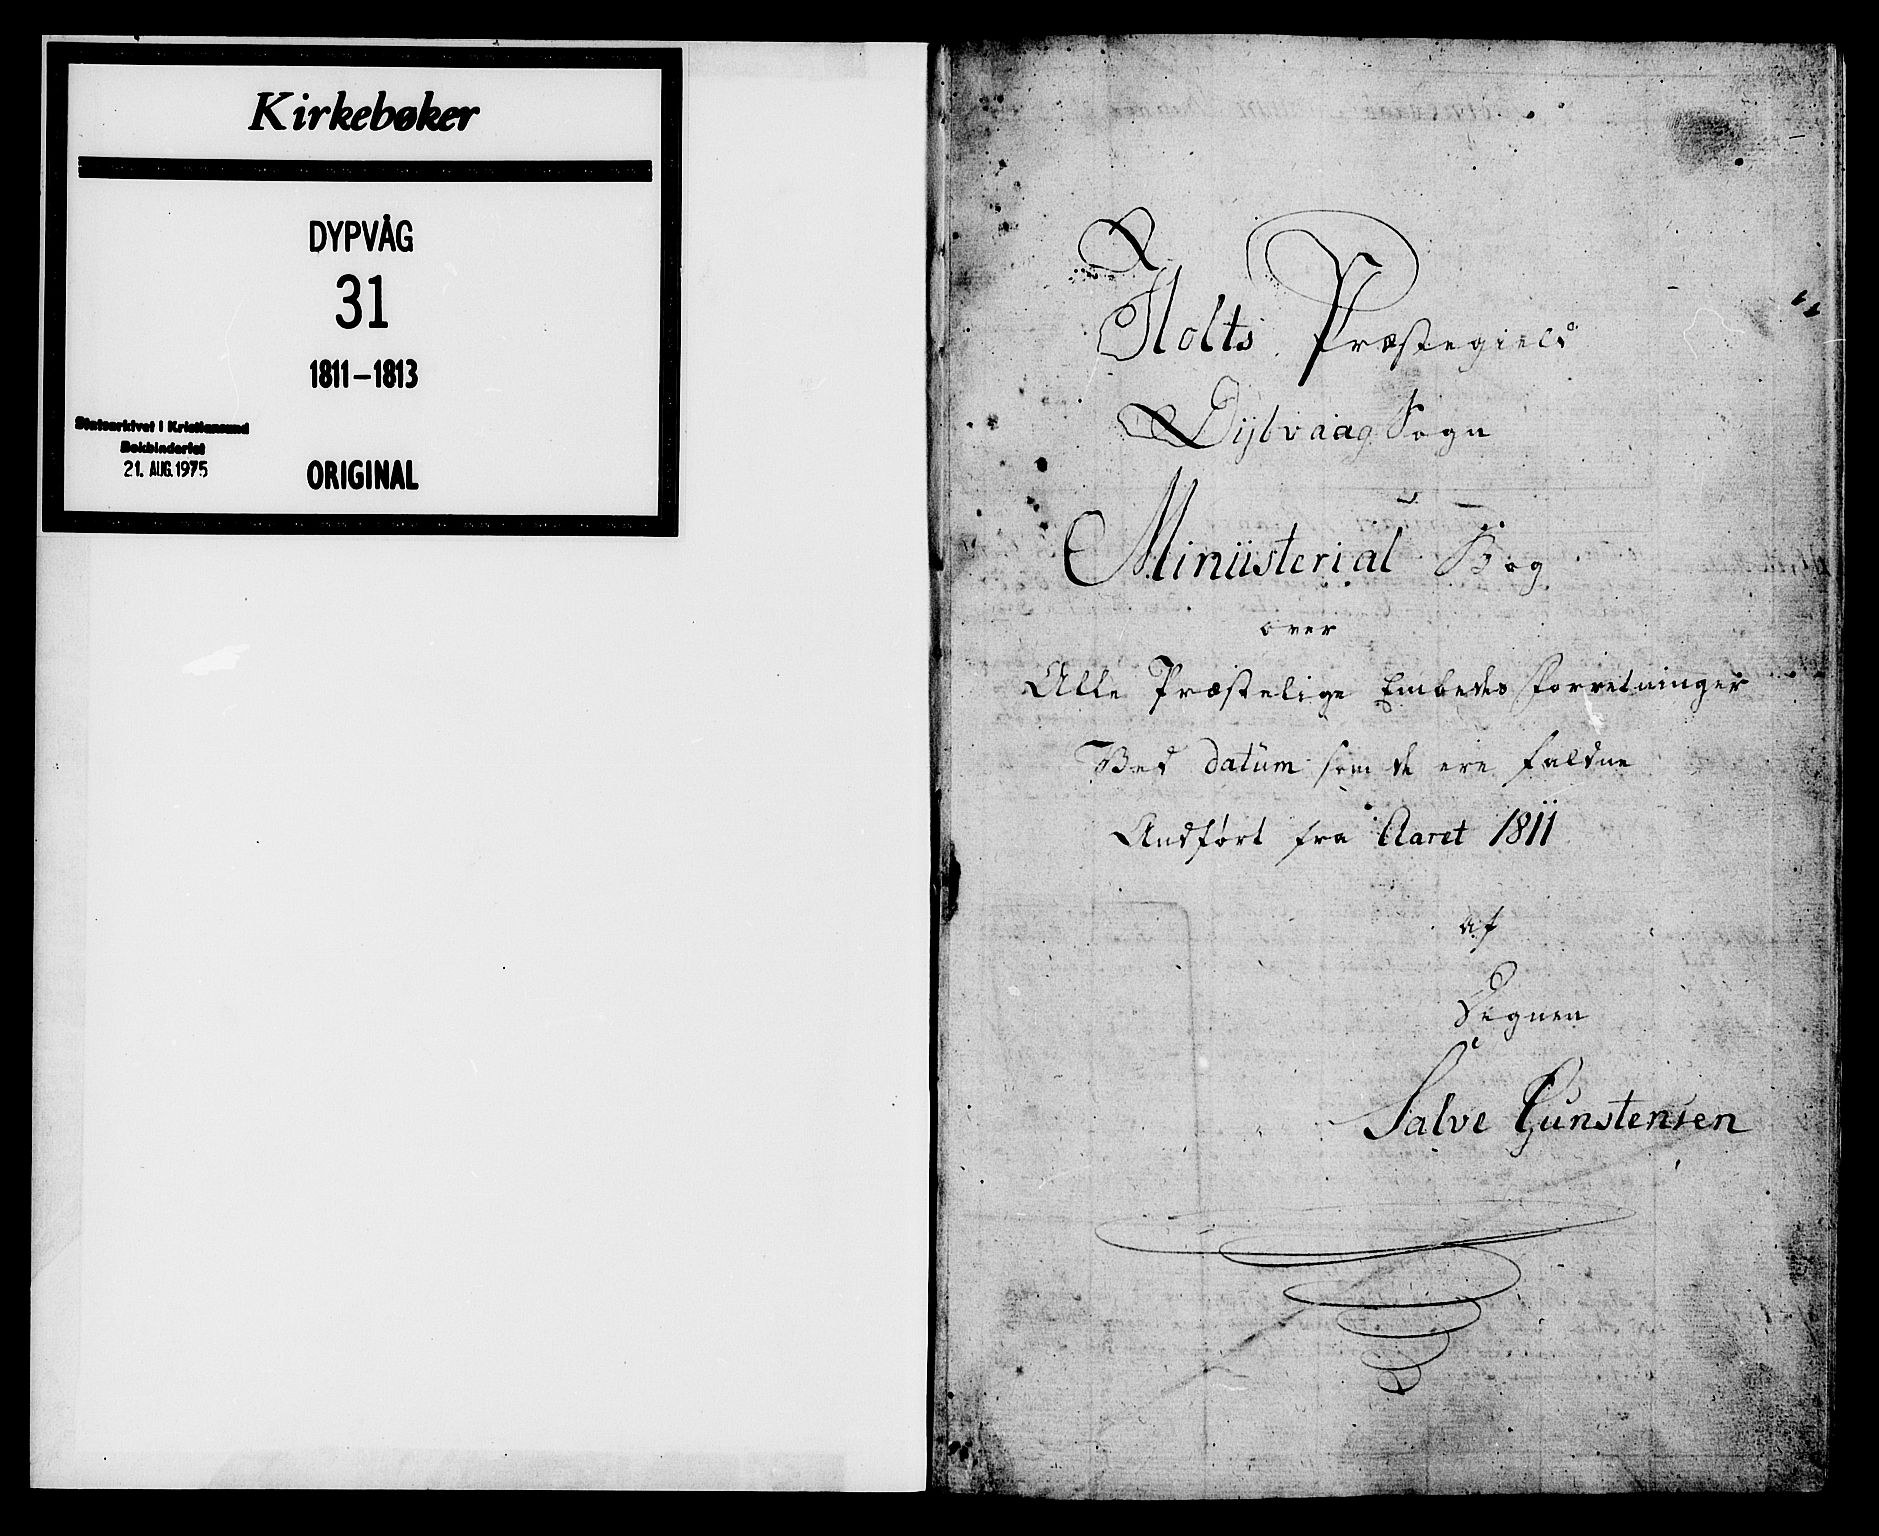 Kirkebøker
DYPVÅG
31
1811-1813
Statsarkivet i Kristiansund
Bokbinderiet
21. AUG. 1975
ORIGINAL
Holts Præstegield
Dijbvaag Sogn
Miniisterial Bog
over
Alle Præstelige Embedes Forretninger
Ved datum som de ere faldne
Andført fra Aaret 1811
af
Degnen
Salve Gunstensen